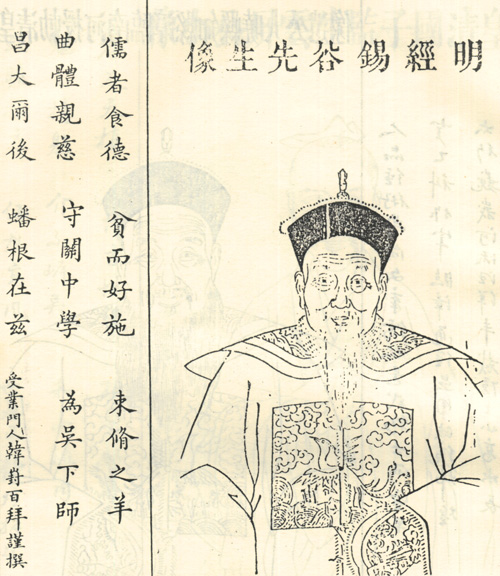 明經錫谷先生像
儒者食德 貧而好施 束脩之羊
曲體親慈 守關中學 為吳下師
昌大爾後 蟠根在茲 受業門人韓崶百拜謹撰